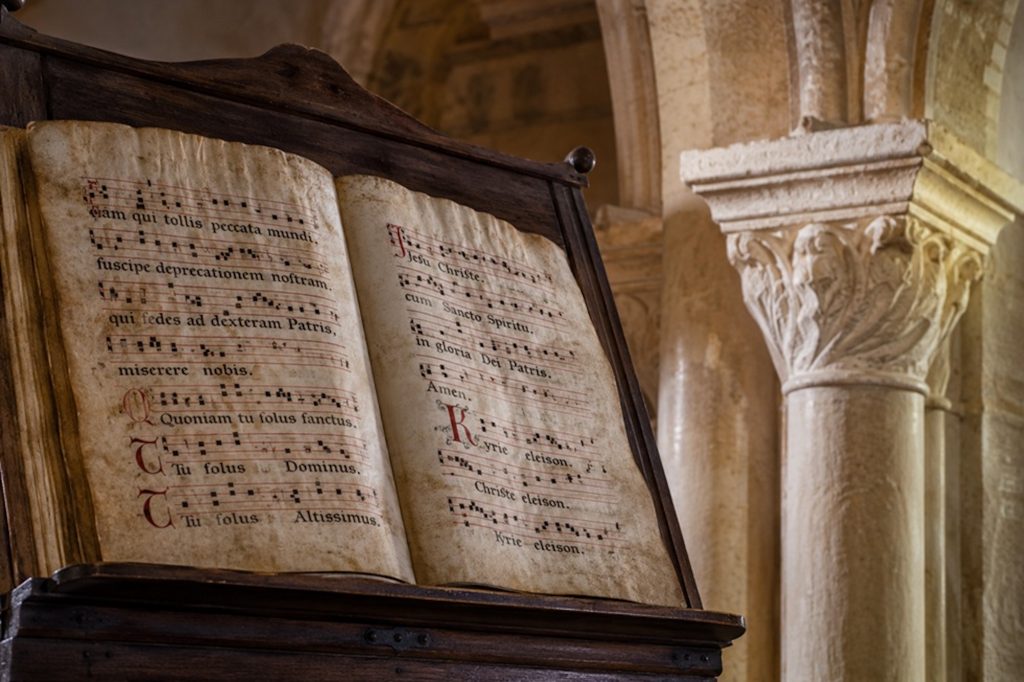 Eam qui tollis peccata mundi.
fuscipe deprecationem noſtram.
qui ſedes ad dexteram Patris,
miserere nobis.
Quoniam tu ſolus ſanctus.
Tu ſolus Dominus.
Tu ſolus Altissimus.
Jeſu Chriſte.
cum Sancto Spiritu.
in gloria Dei Patris.
Amen.
Kyrie eleison.
Chriſte eleison.
Kyrie eleison.